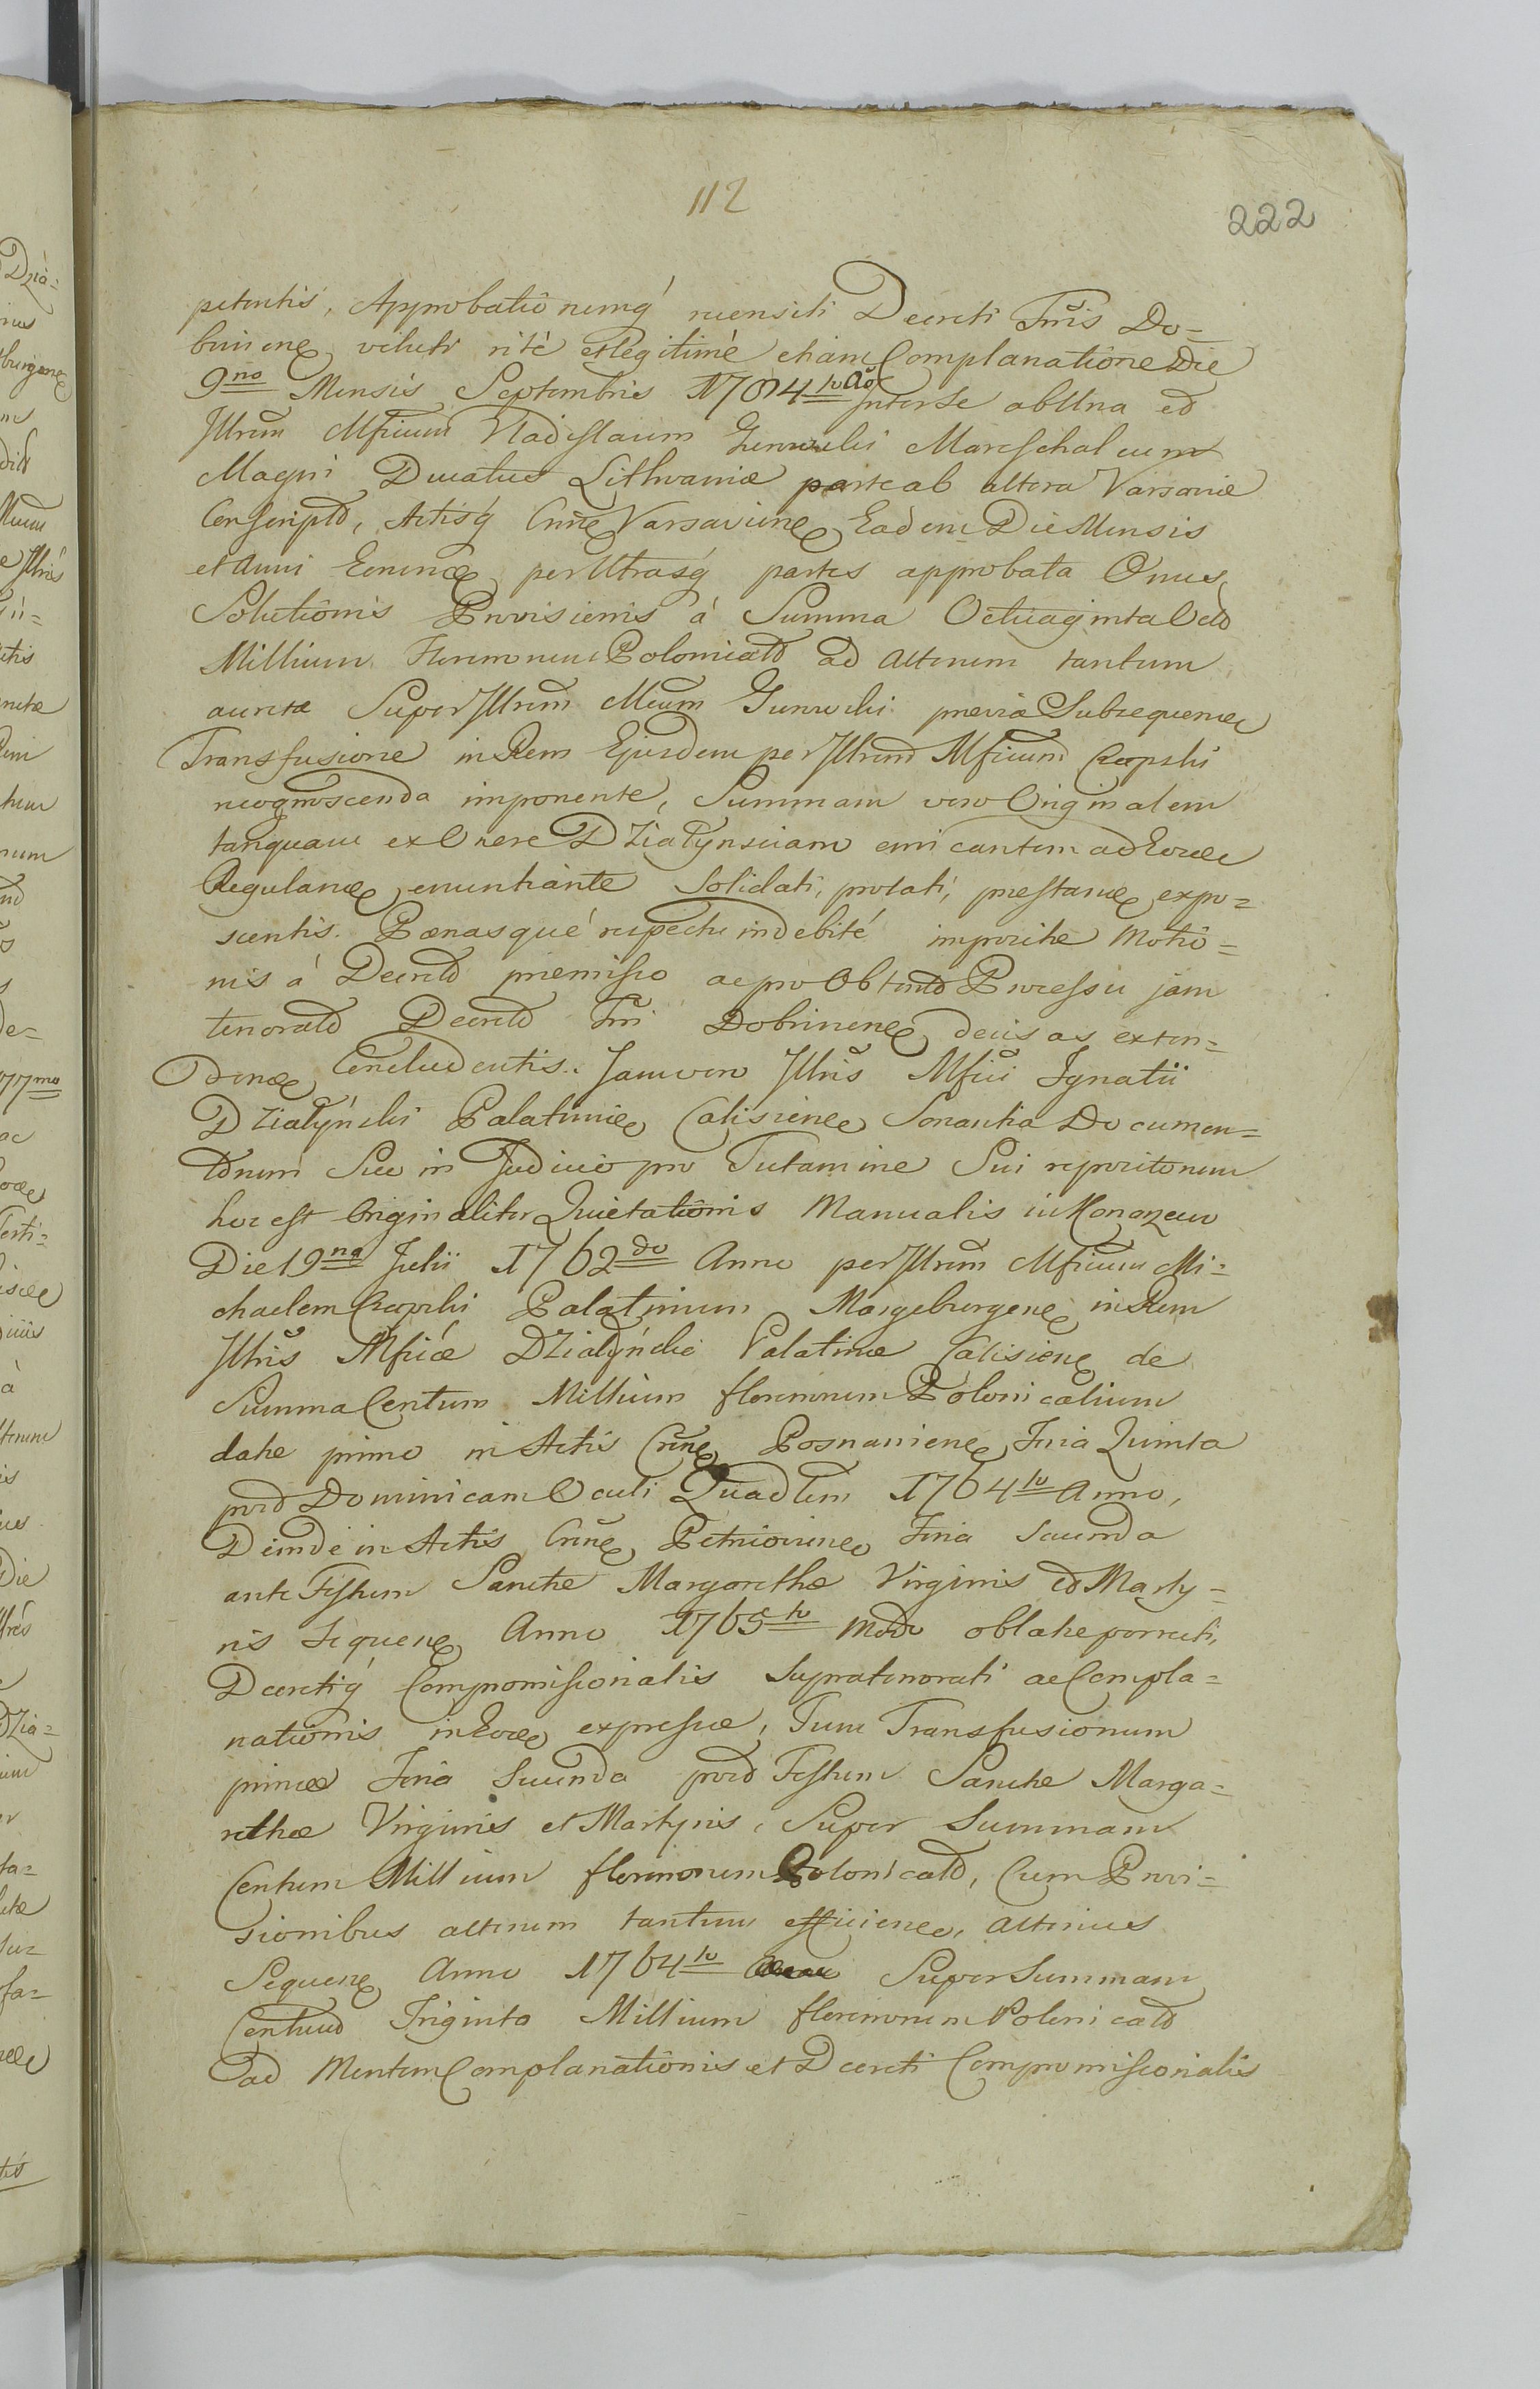 112
222
petentis, Approbationemq́ recensiti Decreti Trῖis Do=
brinens, veluti ritè et Legitimè etiam Complanatione Die
9no Mensis Septembris 1764to Aō Inter se ab Una ed
Illrem Mficum Vladislaum Gurowski Mareschalcum
Magni Ducatus Lithvaniæ parte ab altera Varsaviæ
Conscripta, Actisq́ Crῖne Varsaviens, Eadem Die Mensis
et Anni per Utrasq́ partes approbata Onus
Solutionis Provisionis à Summa Octuaginta Octo
Millium Florenorum Polonicald ad Alterum tantum
auctæ Super Illrem Mcum Gurowski præviæ Subsequene
Transfusione in Rem Ejusdem per Illrem Mficum Czapski
recognoscenda imponente, Summam vero Originalem
tanquam ex Onere Działynsciano emicantem ad
Regulane enuntiante Solidati, probati, præstane, expo=
scentis. Pænasquè respectu indebité imposite Motio=
nis à Decreto præmisso ac pro Obtento Processu jam
tenorato Decreto Trῖi Dobrinene, decisas exten=
dene, Concludentis. Jam vero Illris Mfici Ignatii
Działyński Palatinie, Calisiene Sonantia Documen=
torum Suo in Judicio pro Tutamine Sui repositorum
hoc est Originaliter Quietationis Manualis in Konorzew
Die 19na Julii 1762do Anno per Illrem Mficum Mi=
chaelem Czapski Palatinum Margeburgene, in Rem
Illris Mficæ Działyńska Palatinæ Calisiene, de
Summa Centum Millium florenorum Polonicalium
datæ primo in Actis Crῖne Posnaniene, Feria Quinta
post Dominicam Oculi Quadlem 1764to Anno,
Deinde in Actis Crῖne Petricoviene, Feria Secunda
ante Festum Sanctæ Margarethæ Virginis ed Marty=
ris Sequene, Anno 1765to modo oblatæ porrecti,
Decretiq́ Compromissorialis Supratenorati ac Compla=
nationis in expressæ, Tum Transfusionum
primæ Feria Secunda post Festum Sanctæ Marga=
rethæ Virginis et Martyris, Super Summam
Centum Millium florenorum Polonicald, Cum Provi=
sionibus alterum tantum efficiene, Alterius
Sequene, Anno 1764to Super Summam
Centum Triginta Millium florenorum Polonicald
ad Mentem Complanationis et Decreti Compromissorialis